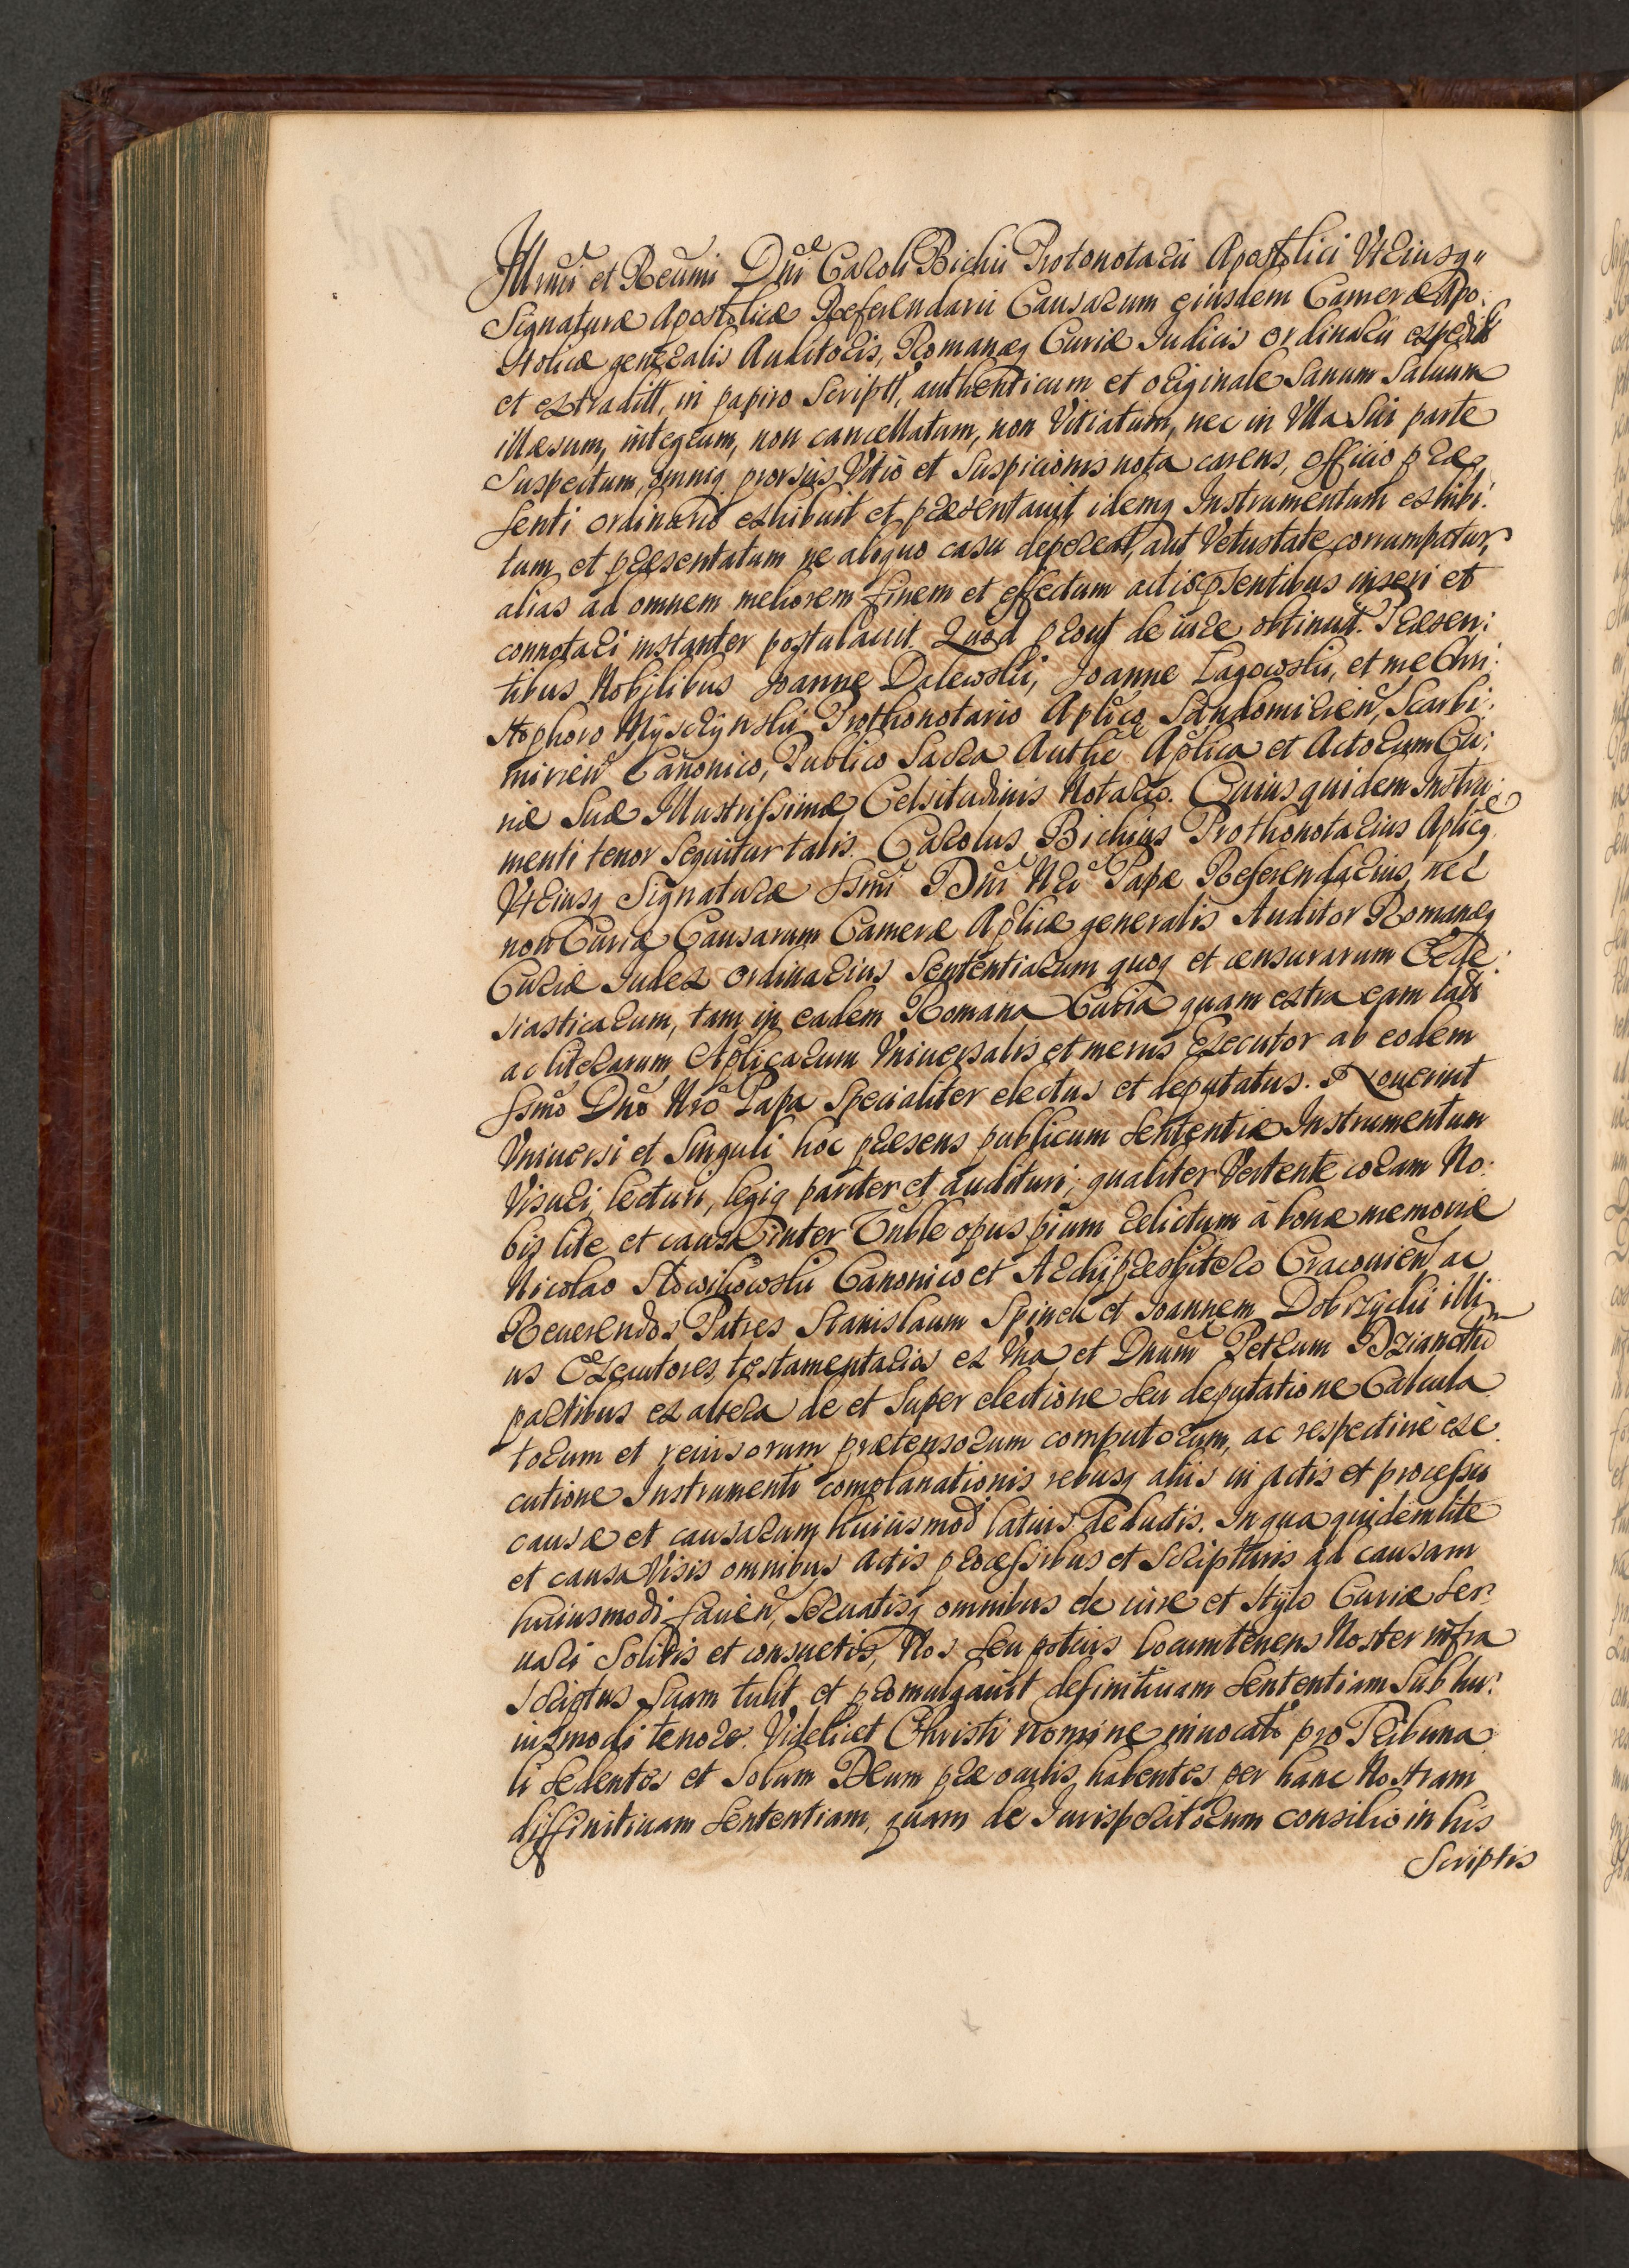 Illrmi et Reumi Dni Caroli Bichii Protonotarii Apostolici Vtriusq"
Signaturæ Apostolicæ Referendarii Causarum eiusdem Cameræ Apo:
stolicæ generalis Auditoris, Romanæq Curiæ Iudicis ordinarii expedit
et extradit, in papiro Script, authenticum et originale Sanum Saluum
illæsum, integrum, non cancellatum, non Vitiatum, nec in Vlla Sui parte
Suspectum, omniq prorsus Vitio et Suspicionis nota carens, officio præ
senti ordinario exhibuit et præsentauit, idemq Instrumentum exhibi:
tum et præsentatum ne aliquo casu depereat, aut Vetustate corrumpatur,
alias ad omnem meliorem finem et effectum actis psentibus inseri et
connotari instanter postulauit. Quod prout de iure obtinuit. Præsen:
tibus Nobilibus Joanne Dalewski, Joanne Lagowski, et me Chri:
stophoro Myszynski Prothonotario Aplico, Sandomirien, Scarbi:
mirien Canonico, Publico Sacra Authe Aplica et Actorum Cu:
riæ Suæ Illustrissimæ Celsitudinis Notario. Cuius quidem Instru:
menti tenor Sequitur talis. Carolus Bichius Prothonotarius Aplicq
Vtriusq Signaturæ Ssmi Dni Nri Papæ Referendarius, nec
non Curiæ Causarum Cameræ Aplicæ generalis Auditor Romanæq
Curiæ Iudex ordinarius Sententiarum quoq et censurarum Eccle:
siasticarum, tam in eadem Romana Curia quam extra eam latt
ac literarum Aplicarum Vniuersalis et merus Executor ab eodem
Ssmo Dno Nro Papa Specialiter electus et deputatus. Nouerint
Vniuersi et Singuli hoc præsens publicum Sententiæ Instrumentum
Visuri, lecturi, legiq pariter et audituri; qualiter Vertente coram No:
bis lite et causa inter Vnble opus pium relictum à bonæ memoriæ
Nicolao Słowikowski Canonico et Archipresbitero Cracouien, ac
Reuerendos Patres Stanislaum Spinek et Joannem Dobrzycki illi
us Executores, testamentarios ex Vna et Dnum Petrum Dzianotti
partibus ex altera de et Super electione seu deputatione Calcula
torum et reuisorum prætensorum computorum, ac respectiuè exe:
cutione Instrumenti complanationis rebusq aliis in actis et processu
causæ et causarum huiusmodi latius deductis. In qua quidem lite
et causa Visis omnibus actis processibus et Scripturis ad causam
huiusmodi facien, Seruatisq omnibus de iure et Stylo Curiæ Ser:
uari Solitis et consuetis, Nos Seu potius Locumtenens Noster infra
scriptus Suam tulit et promulgauit definitiuam Sententiam Sub hu:
iusmodi tenore. Videlicet Christi nomine inuocato pro Tribuna
li Sedentes et Solum Deum præ oculis habentes per hanc Nostram
diffinitiuam Sententiam, quam de Iurisperitorum consilio in his
Scriptis